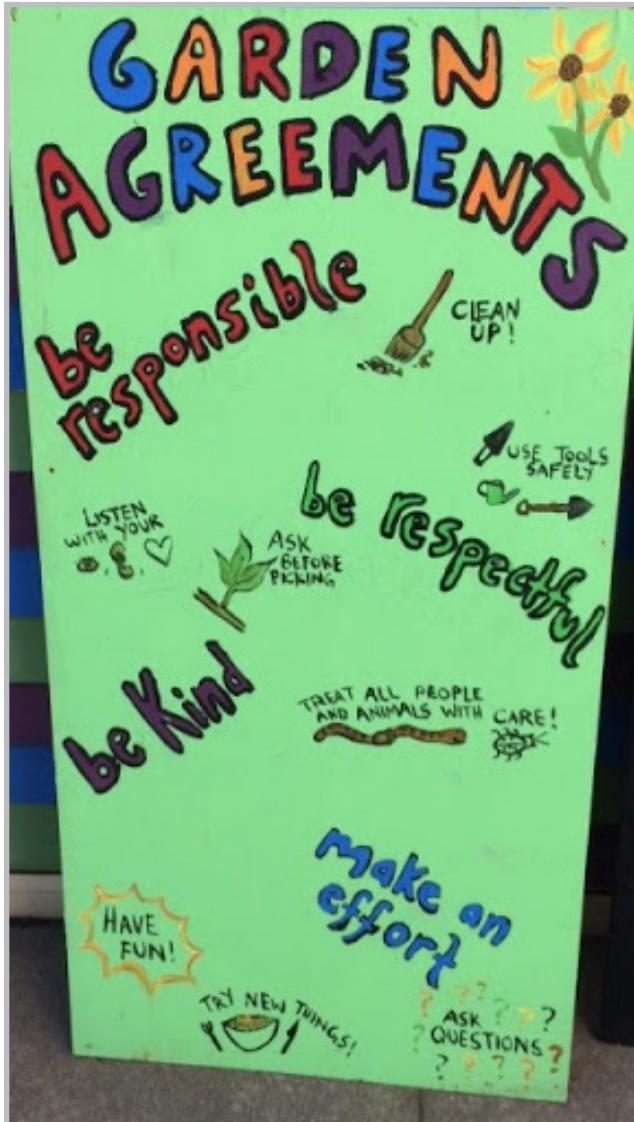 GARDEN
AGREEMENTS
be
responsible
CLEAN
UP!
USE TOOLS
SAFELY
be respectful
LISTEN
WITH YOUR
ASK
BEFORE
PICKING
be Kind
TREAT ALL PEOPLE
AND ANIMALS WITH CARE!
make an
effort
HAVE
FUN!
TRY NEW THINGS!
? ? ? ? ? ?
ASK
QUESTIONS ?
? ? ? ? ?